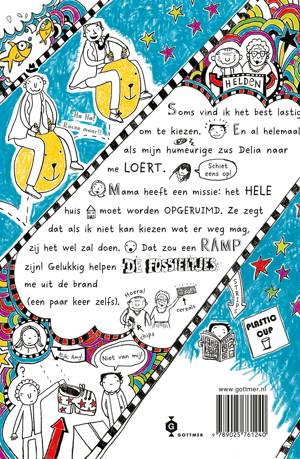 HELDEN
Ha Ha!
Racen maar!!
Soms vind ik het best lastig
om te kiezen. En al helemaal
als mijn humeurige zus Delia naar
me LOERT.
Schiet
eens op!
Mama heeft een missie: het HELE
huis moet worden OPGERUIMD. Ze zegt
dat als ik niet kan kiezen wat er weg mag,
zij het wel zal doen. Dat zou een RAMP
zijn! Gelukkig helpen DE FOSSIELTJES
me uit de brand
(een paar keer zelfs).
Hoera!
cereals
chips
Ook, Amy!
Niet van mij!
PLASTIC
CUP
www.gottmer.nl
G
GOTTMER
9 789025 761240